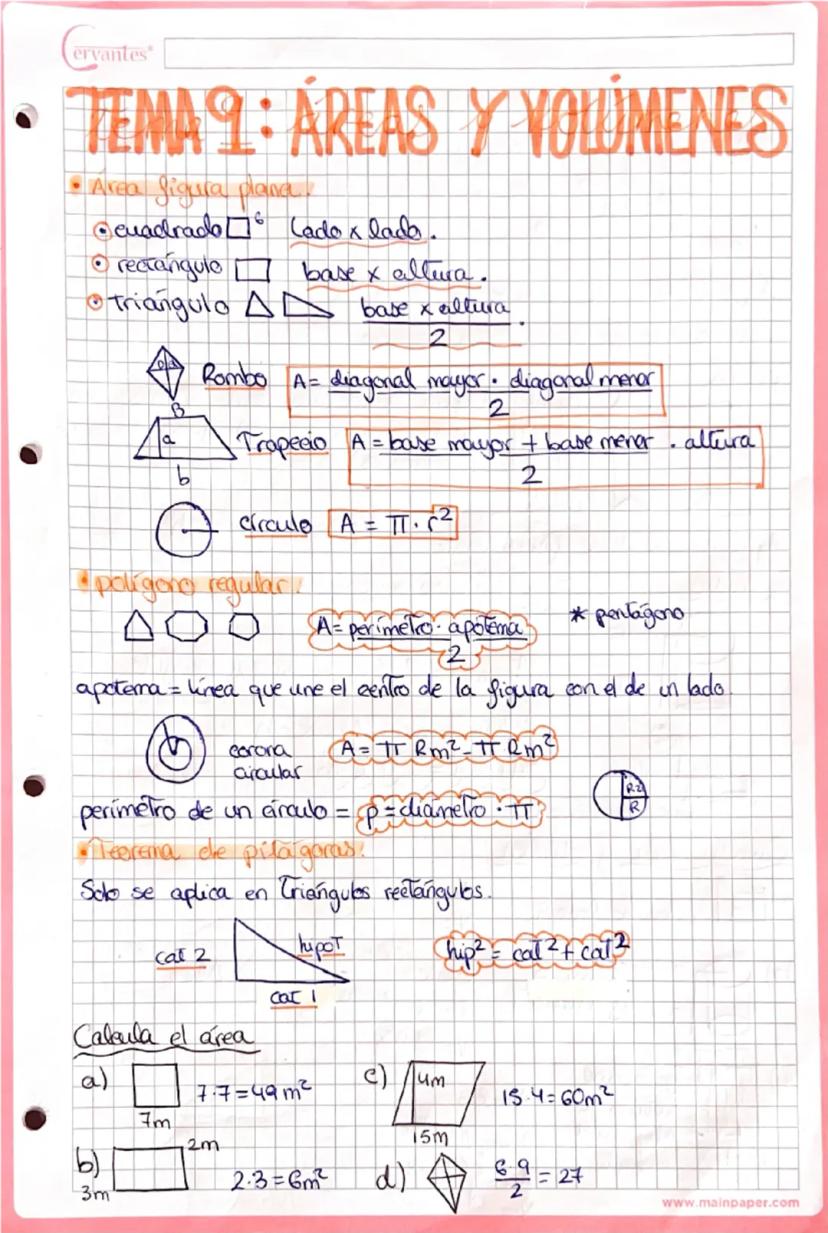 Cervantes®
TEMA 9: ÁREAS Y VOLÚMENES
• Área figura plana:
cuadrado 6 lado x lado.
rectángulo base x altura.
triángulo base x altura.
2
D d Rombo A = diagonal mayor · diagonal menor
2
B
a Trapecio A = base mayor + base menor · altura
b 2
círculo A = π · r²
• polígono regular:
A = perímetro · apotema * pentágono
2
apotema = línea que une el centro de la figura con el de un lado.
corona A = π Rm² - π Rm²
circular
R2
R
perímetro de un círculo = p = diámetro · π
• Teorema de pitágoras:
Solo se aplica en Triángulos rectángulos.
cat 2 hipoT hip² = cat² + cat²
cat 1
Calcula el área
a) 7·7=49m² c) 4m 15·4=60m²
7m 15m
b) 2m
3m 2·3=6m² d) 6·9 = 27
2
www.mainpaper.com